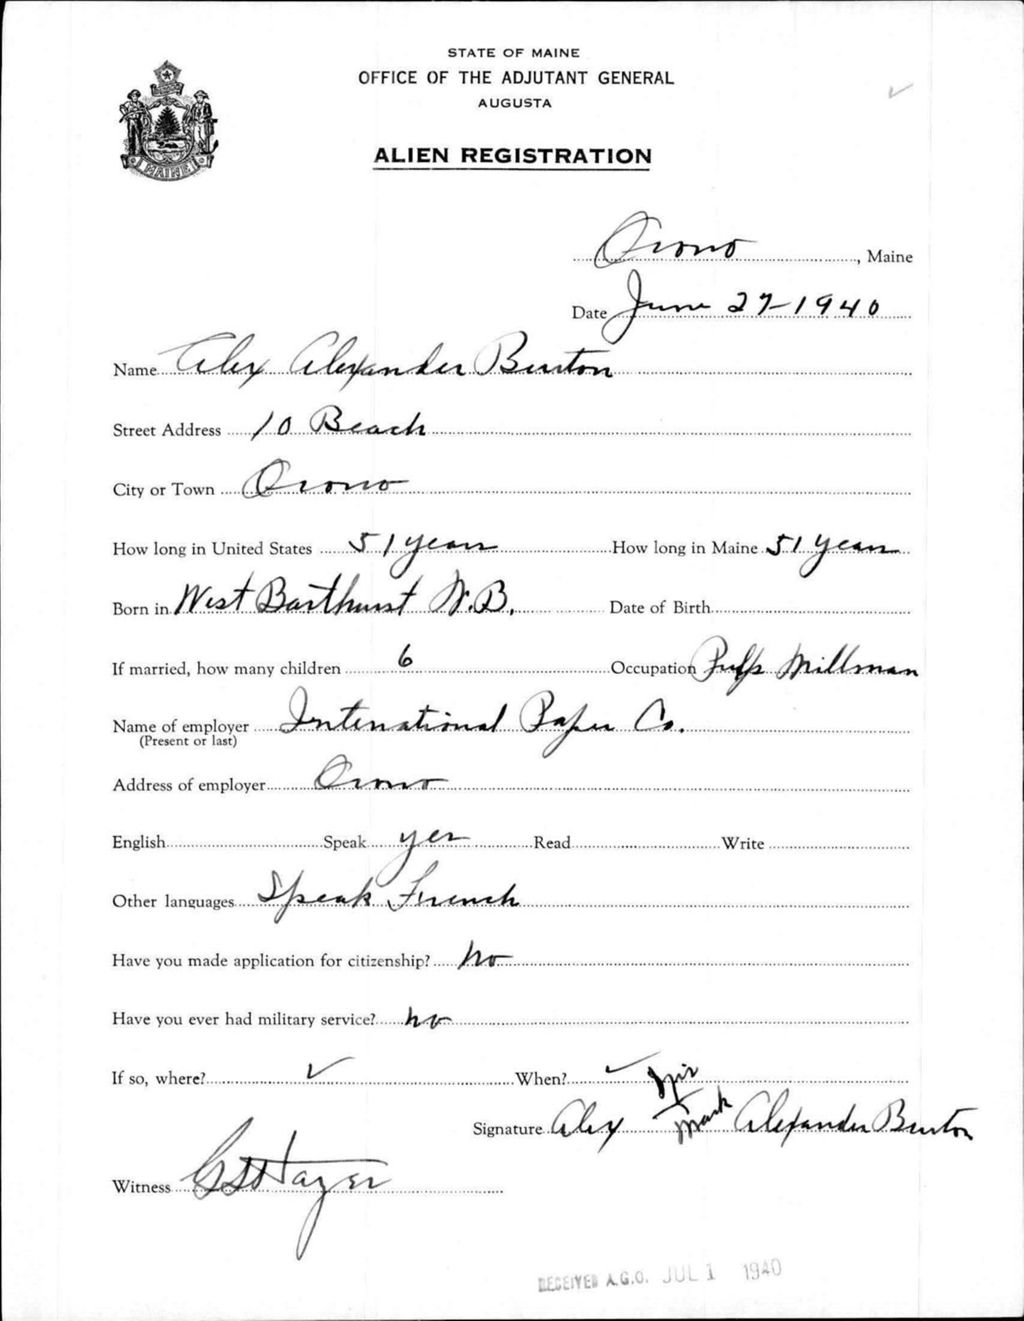 STATE OF MAINE
OFFICE OF THE ADJUTANT GENERAL
AUGUSTA
MAINE
ALIEN REGISTRATION
Orono, Maine
Date June 27-1940
Name Alex Alexander Burton
Street Address 10 Beach
City or Town Orono
How long in United States 51 years How long in Maine 51 years
Born in West Barthurst N.B. Date of Birth
If married, how many children 6 Occupation Pulp Millman
Name of employer International Paper Co.
(Present or last)
Address of employer Orono
English Speak yes Read Write
Other languages Speak French
Have you made application for citizenship? no
Have you ever had military service? no
If so, where? ✓ When? ✓
his
Signature Alex X Alexander Burton
mark
Witness
RECEIVED A.G.O. JUL 1 1940